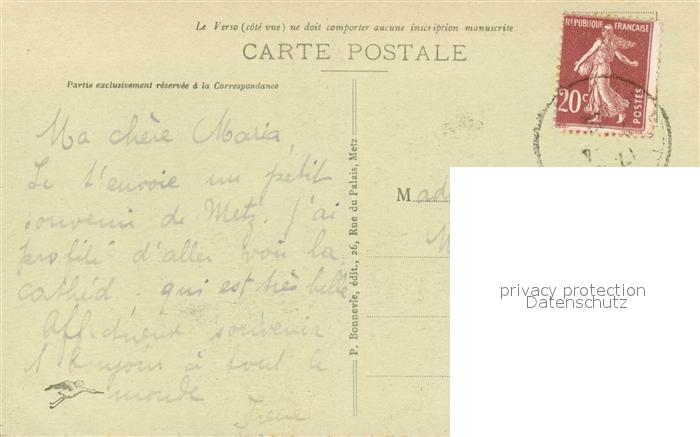 Le Verso (côté vue) ne doit comporter aucune inscription manuscrite
CARTE POSTALE
Partie exclusivement réservée à la Correspondance
Ma chère Maria,
Je t'envoie un petit
souvenir de Metz. J'ai
profité d'aller voir la
cathéd. qui est très belle
Affectueux souvenir
1 bonjour à tout le
monde
Irène
P. Bonnevie, édit., 26, Rue du Palais, Metz
M
REPUBLIQUE FRANÇAISE
20c
POSTES
privacy protection
Datenschutz